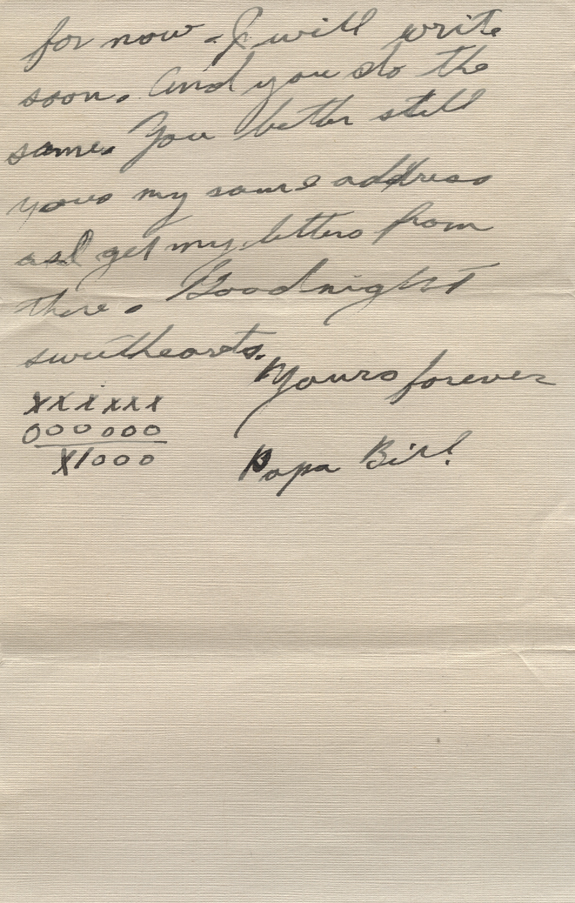 for now - I will write
soon. And you do the
same. You better still
my same address
as I get my letters from
there. Goodnight
sweethearts.
Yours forever
xxxxxx
000000
X1000
Papa Bill